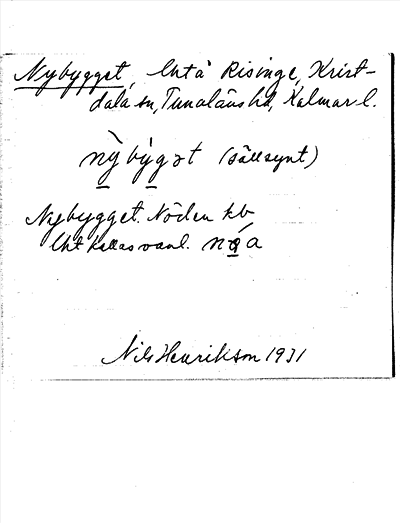 Nybygget, lht å Risinge, Krist-
dala sn, Tunaläns hd, Kalmar l.
nỳbýgət (sällsynt)
Nybygget. Nöden kb
lht kallas vanl.
Nils Henrikson 1931